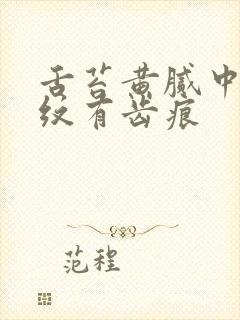 舌苔黄腻中
纹有齿痕
范程